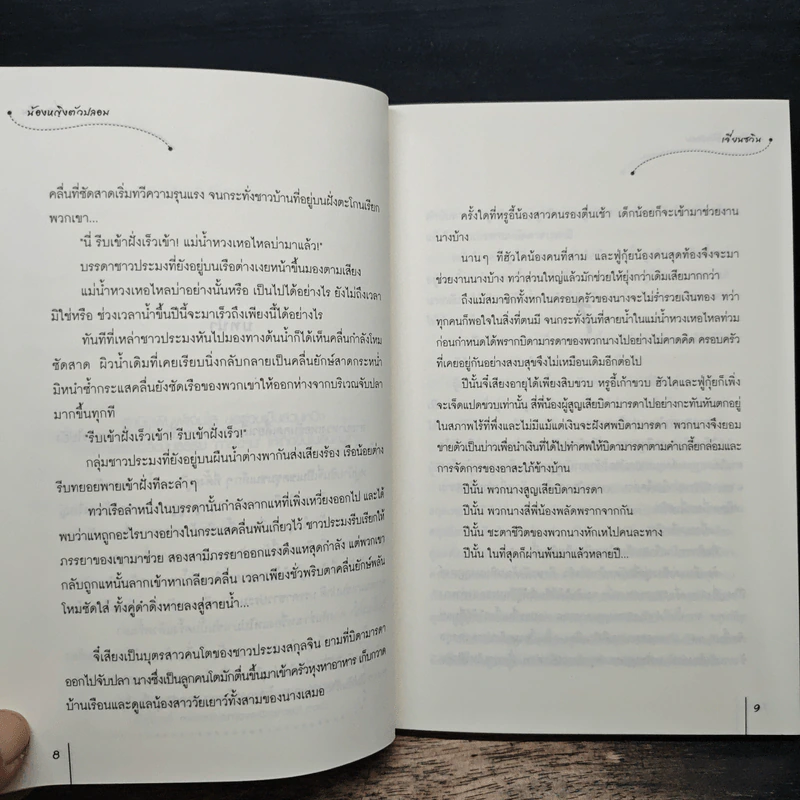 น้องหญิงตัวปลอม
คลื่นที่ซัดสาดเริ่มทวีความรุนแรง จนกระทั่งชาวบ้านที่อยู่บนฝั่งตะโกนเรียก
พวกเขา...
"นี่ รีบเข้าฝั่งเร็วเข้า! แม่น้ำหวงเหอไหลบ่ามาแล้ว!"
บรรดาชาวประมงที่ยังอยู่บนเรือต่างเงยหน้าขึ้นมองตามเสียง
แม่น้ำหวงเหอไหลบ่าอย่างนั้นหรือ เป็นไปได้อย่างไร ยังไม่ถึงเวลา
มิใช่หรือ ช่วงเวลาน้ำขึ้นปีนี้จะมาเร็วถึงเพียงนี้ได้อย่างไร
ทันทีที่เหล่าชาวประมงหันไปมองทางต้นน้ำก็ได้เห็นคลื่นกำลังโหม
ซัดสาด ผิวน้ำเดิมที่เคยเรียบนิ่งกลับกลายเป็นคลื่นยักษ์สาดกระหน่ำ
มิหนำซ้ำกระแสคลื่นยังซัดเรือของพวกเขาให้ออกห่างจากบริเวณจับปลา
มากขึ้นทุกที
"รีบเข้าฝั่งเร็วเข้า! รีบเข้าฝั่งเร็ว!"
กลุ่มชาวประมงที่ยังอยู่บนผืนน้ำต่างพากันส่งเสียงร้อง เรือน้อยต่าง
รีบทยอยพายเข้าฝั่งทีละลำๆ
ทว่าเรือลำหนึ่งในบรรดานั้นกำลังลากแหที่เพิ่งเหวี่ยงออกไป และได้
พบว่าแหถูกอะไรบางอย่างในกระแสคลื่นพันเกี่ยวไว้ ชาวประมงรีบเรียกให้
ภรรยาของเขามาช่วย สองสามีภรรยาออกแรงดึงแหสุดกำลัง แต่พวกเขา
กลับถูกแหนั้นลากเข้าหาเกลียวคลื่น เวลาเพียงชั่วพริบตาคลื่นยักษ์พลัน
โหมซัดใส่ ทั้งคู่ดำดิ่งหายลงสู่สายน้ำ...
จี่เสียงเป็นบุตรสาวคนโตของชาวประมงสกุลจิน ยามที่บิดามารดา
ออกไปจับปลา นางซึ่งเป็นลูกคนโตมักตื่นขึ้นมาเข้าครัวหุงหาอาหาร เก็บกวาด
บ้านเรือนและดูแลน้องสาววัยเยาว์ทั้งสามของนางเสมอ
8
เจี่ยนชวิน
ครั้งใดที่หรูอี้น้องสาวคนรองตื่นเช้า เด็กน้อยก็จะเข้ามาช่วยงาน
นางบ้าง
นานๆ ทีฮัวไคน้องคนที่สาม และฟู่กุ้ยน้องคนสุดท้องจึงจะมา
ช่วยงานนางบ้าง ทว่าส่วนใหญ่แล้วมักช่วยให้ยุ่งกว่าเดิมเสียมากกว่า
ถึงแม้สมาชิกทั้งหกในครอบครัวของนางจะไม่ร่ำรวยเงินทอง ทว่า
ทุกคนก็พอใจในสิ่งที่ตนมี จนกระทั่งวันที่สายน้ำในแม่น้ำหวงเหอไหลท่วม
ก่อนกำหนดได้พรากบิดามารดาของพวกนางไปอย่างไม่คาดคิด ครอบครัว
ที่เคยอยู่กันอย่างสงบสุขจึงไม่เหมือนเดิมอีกต่อไป
ปีนั้นจี่เสียงอายุได้เพียงสิบขวบ หรูอี้เก้าขวบ ฮัวไคและฟู่กุ้ยก็เพิ่ง
จะเจ็ดแปดขวบเท่านั้น สี่พี่น้องผู้สูญเสียบิดามารดาไปอย่างกะทันหันตกอยู่
ในสภาพไร้ที่พึ่งและไม่มีแม้แต่เงินจะฝังศพบิดามารดา พวกนางจึงยอม
ขายตัวเป็นบ่าวเพื่อนำเงินที่ได้ไปทำศพให้บิดามารดาตามคำเกลี้ยกล่อมและ
การจัดการของอาสะใภ้ข้างบ้าน
ปีนั้น พวกนางสูญเสียบิดามารดา
ปีนั้น พวกนางสี่พี่น้องพลัดพรากจากกัน
ปีนั้น ชะตาชีวิตของพวกนางหักเหไปคนละทาง
ปีนั้น ในที่สุดก็ผ่านพ้นมาแล้วหลายปี...
9